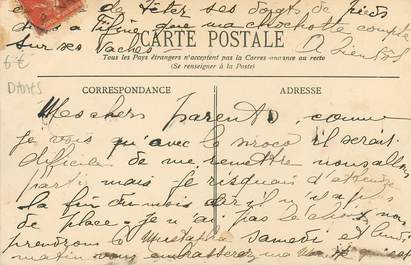 de têter ses doigts de pieds
que ma cocotte compte
sur ses vaches
CARTE POSTALE
A bientôt
Tous les Pays étrangers n'acceptent pas la Correspondance au recto
(Se renseigner à la Poste)
6€
DANES
CORRESPONDANCE
ADRESSE
Mes chers parents, comme
je vois qu'avec le siroco il serait
difficile de me remettre nous allons
partir mais je risquais d'attendre
la fin du mois car il n'y a plus
de place. je n'ai pas le choix nous
prendrons le Mustapha samedi et lundi
matin vous embrasserez